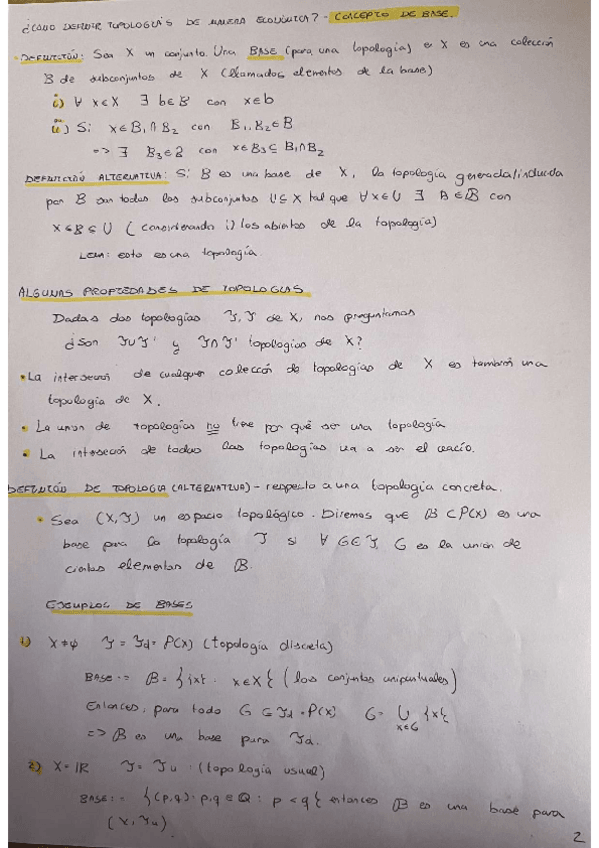 ¿COMO DEFINIR TOPOLOGÍAS DE MANERA ECONÓMICA? - CONCEPTO DE BASE.
· DEFINICIÓN: Sea X un conjunto. Una BASE (para una topología) en X es una colección
B de subconjuntos de X (llamados elementos de la base)
i) ∀ x∈X ∃ b∈B con x∈b
ii) Si x∈B₁∩B₂ con B₁,B₂∈B
=> ∃ B₃∈B con x∈B₃⊆B₁∩B₂
DEFINICIÓN ALTERNATIVA: Si B es una base de X, la topología generada/inducida
por B son todos los subconjuntos U⊆X tal que ∀x∈U ∃ B∈B con
x∈B⊆U (considerando i) los abiertos de la topología)
Lem: esto es una topología.
ALGUNAS PROPIEDADES DE TOPOLOGIAS
Dadas dos topologías T, T' de X, nos preguntamos
¿Son T∪T' y T∩T' topologías de X?
• La intersección de cualquier colección de topologías de X es también una
topología de X.
• La union de topologías no tiene por qué ser una topología
• La intersección de todas las topologías va a ser el vacío.
DEFINICIÓN DE TOPOLOGIA (ALTERNATIVA) - respecto a una topología concreta.
• Sea (X,T) un espacio topológico. Diremos que B⊂P(X) es una
base para la topología T si ∀ G∈T, G es la unión de
ciertos elementos de B.
EJEMPLOS DE BASES
1) X≠φ T = Td = P(X) (topología discreta)
BASE := B = {{x} : x∈X} (los conjuntos unipuntuales)
Entonces, para todo G∈Td = P(X) G = ∪ {x}
x∈G
=> B es una base para Td.
2) X = IR T = Tu (topología usual)
BASE := {(p,q) : p,q ∈ Q : p < q} entonces B es una base para
(X, Tu).
2